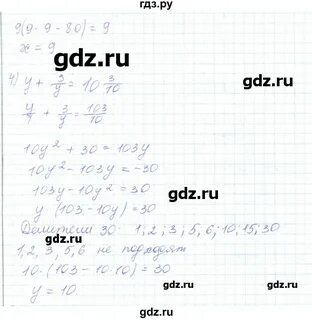 гдз.ру
9(9·9-80)=9
x=9
gdz.ru
4) y + 3/y = 10 3/10
y/1 + 3/y = 103/10
10y² + 30 = 103y
10y² - 103y = -30
gdz.ru
103y - 10y² = 30
y (103 - 10y) = 30
Делители 30: 1; 2; 3; 5; 6; 10; 15; 30
1, 2, 3, 5, 6 не подходят
10·(103 - 10·10) = 30
y = 10
gdz.ru